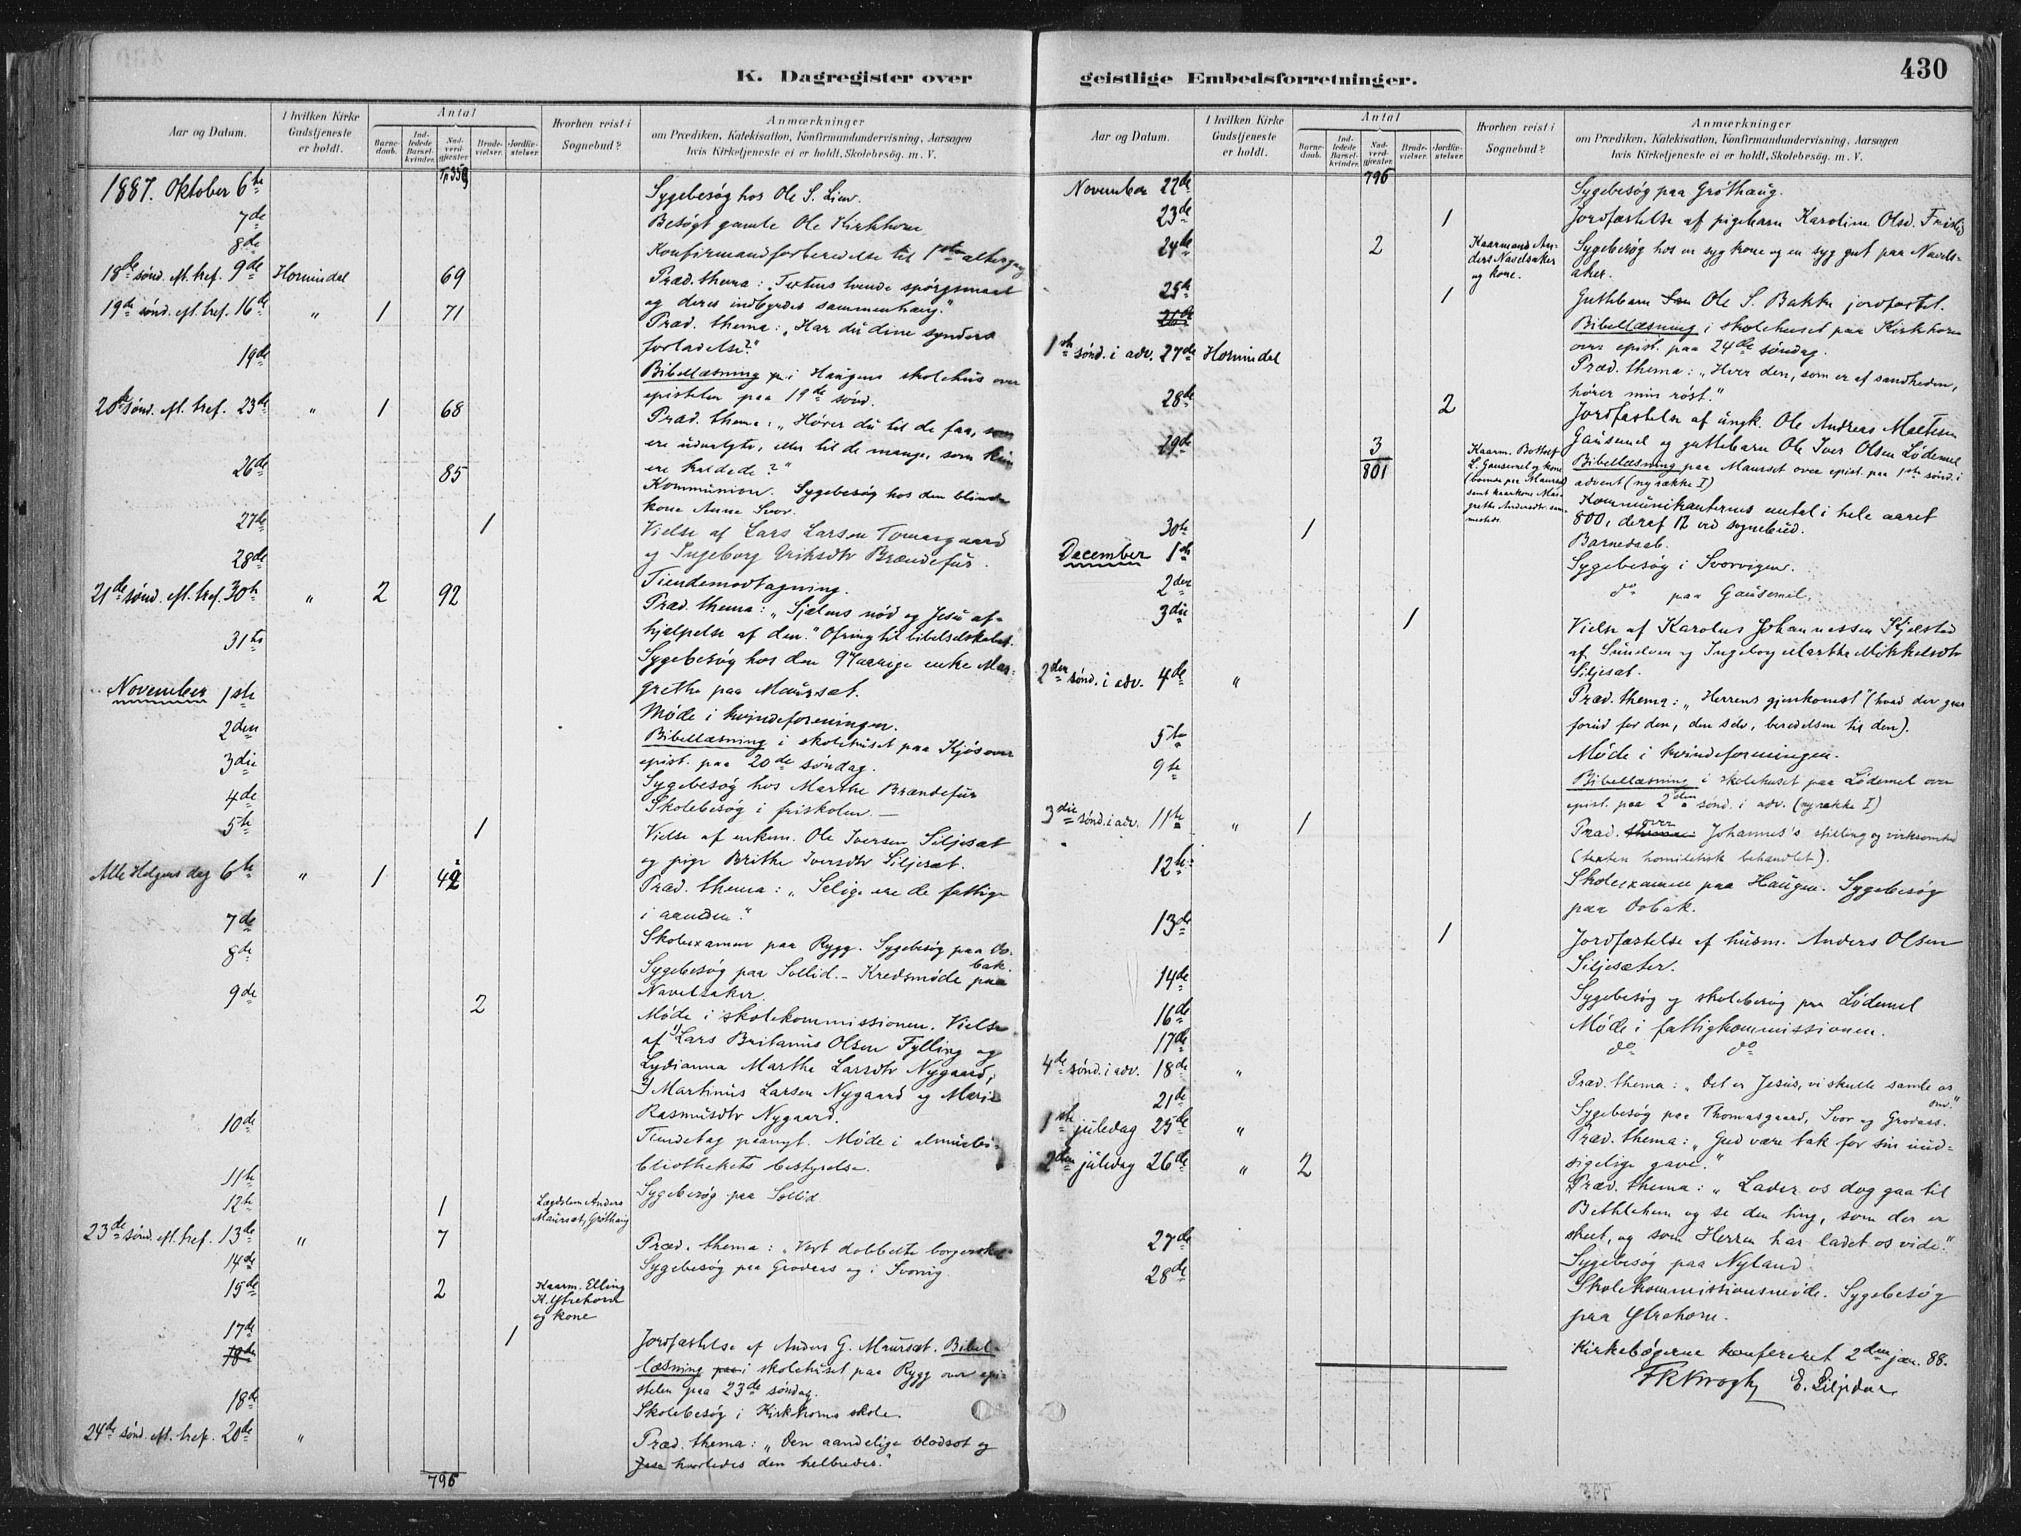 K. Dagregister over
Aar og Datum.
I hvilken Kirke Gudstjeneste er holdt.
Antal
Barne-daab.
Ind-ledede Barsel-kvinder.
Nad-verd-gjæster
Brude-vielser.
Jordfæ-stelser.
Hvorhen reist i Sognebud?
Anmærkninger
om Prædiken, Katekisation, Konfirmandundervisning, Aarsagen
hvis Kirketjeneste ei er holdt, Skolebesøg. m. V.
1887. Oktober 6te Sygebesøg hos Ole S. Lien.
7de Besøgt gamle Ole Kirkhorn
8de Konfirmandforberedelse til 1ste altergang
18de sønd. eft. tref. 9de Hornindal 69 Præd. thema: "Textens tvende spørgsmaal
og deres indbyrdes sammenhæng."
19de sønd. eft. tref. 16de " 1 71 Præd. thema: "Har du dine synders
forladelse?"
19de Bibellæsning i Haugens skolehus over
epistelen paa 19de sønd.
20de sønd. eft. tref. 23de " 1 68 Præd. thema: "Hører du til de faa, som
ere udvalgte, eller til de mange, som kun
ere kaldede?"
26de 85 Kommunion. Sygebesøg hos den blinde
kone Anne Svor.
27de 1 Vielse af Lars Larsen Tomasgaard
og Ingeborg Eriksdtr Brændefur.
28de Tiendemodtagning.
21de sønd. eft. tref. 30te " 2 92 Præd. thema: "Sjælens nød og Jesu af-
hjælpelse af den." Ofring til bibelselskabet.
31te Sygebesøg hos den 94aarige enke Mar-
grethe paa Maurset.
November 1ste Møde i kvindeforeningen.
2den Bibellæsning i skolehuset paa Kjøs over
epist. paa 20de søndag.
3die Sygebesøg hos Marthe Brændefur
4de Skolebesøg i friskolen. —
5te 1 Vielse af enkem. Ole Iversen Siljesæt
og pige Brithe Iversdtr Siljesæt.
Alle Helgens dag 6te " 1 42 Præd. thema: "Salige ere de fattige
i aanden."
7de Skoleexamen paa Rygg. Sygebesøg paa Oo-
bak.
8de Sygebesøg paa Sollid. – Kredsmøde paa
Navelsaker.
9de 2 Møde i skolekommissionen. Vielse
af 1) Lars Britanus Olsen Fylling og
Lydianna Marthe Larsdtr Nygaard,
2) Martinus Larsen Nygaard og Marie
Rasmusdtr Nygaard.
10de Tiendetag paanyt. Møde i almuebi-
bliothekets bestyrelse.
11te Sygebesøg paa Sollid
12te 1 Lægdslem Anders
Maurset, Grøthaug
23de sønd. eft. tref. 13de " 7 Præd. thema: "Vort dobbelte borgerskab
14de Sygebesøg paa Grodaas og i Svorvig.
15de 2 Kaarm. Elling
K. Ytrehorn
og kone
17de 1 Jordfæstelse af Anders G. Maurset. Bibel-
læsning i skolehuset paa Rygg over epi-
stelen paa 23de søndag.
18de Skolebesøg i Kirkhorns skole.
24de sønd. eft. tref. 20de " Præd. thema: "Den aandelige blodsot og
hvorledes den helbredes."
795
geistlige Embedsforretninger.
430
Aar og Datum.
I hvilken Kirke Gudstjeneste er holdt.
Antal
Barne-daab.
Ind-ledede Barsel-kvinder.
Nad-verd-gjæster
Brude-vielser.
Jordfæ-stelser.
Hvorhen reist i Sognebud?
Anmærkninger
om Prædiken, Katekisation, Konfirmandundervisning, Aarsagen
hvis Kirketjeneste ei er holdt, Skolebesøg. m. V.
795
November 22de Sygebesøg paa Grøthaug.
23de 1 Jordfæstelse af pigebarn Karoline Olsd. Frislid
24de 2 Kaarmand An-
ders Navelsaker
og kone.
Sygebesøg hos en syg kone og en syg gut paa Navels-
aker.
25de 1 Guttebarn Ole S. Bakke jordfæstet.
Bibellæsning i skolehuset paa Kirkhorn
over epist. paa 24de søndag.
1ste sønd. i adv. 27de Hornindal Præd. thema: "Hver den, som er af sandheden,
hører min røst."
28de 2 Jordfæstelse af ungk. Ole Andreas Mattesen
Gausemel og guttebarn Ole Iver Olsen Lødemel
29de 3 Kaarm. Bottolf
L. Gausemel og kone
(boende paa Maurset)
samt kaarkone Mar-
grethe Andersdtr sam-
mesteds.
801
Bibellæsning paa Maurset over epist. paa 1ste sønd. i
advent (ny række I)
Kommunikanternes antal i hele aaret
800, deraf 12 ved sognebud.
30te 1 Barnedaab.
December 1ste Sygebesøg i Svorvigen.
2den do paa Gausemel.
3die 1 Vielse af Karolus Johannessen Kjelstad
af Sunelven og Ingeborg Marthe Mikkelsdtr
Siljesæt.
2den sønd. i adv. 4de " Præd. thema: "Herrens gjenkomst" (hvad der gaar
forud for den, den selv, beredelsen til den).
5te Møde i kvindeforeningen.
9te Bibellæsning i skolehuset paa Lødemel over
epist. paa 2den sønd. i adv. (ny række I)
3die sønd. i adv. 11te " 1 Præd. over Johannes's stilling og virksomhed
(texten homiletisk behandlet).
12te Skoleexamen paa Haugen. Sygebesøg
paa Oobak.
13de 1 Jordfæstelse af husm. Anders Olsen
Siljesæter.
14de Sygebesøg og skolebesøg paa Lødemel
16de Møde i fattigkommissionen.
17de do do
4de sønd. i adv. 18de " Præd. thema: "Det er Jesus, vi skulle samle os
om."
21de Sygebesøg paa Thomasgaard, Svor og Grodaas.
1ste juledag 25de " Præd. thema: "Gud være tak for sin uud-
sigelige gave."
2den juledag 26de " 2 Præd. thema: "Lader os dog gaa til
Bethlehem og se den ting, som der er
skeet, og som Herren har ladet os vide."
27de Sygebesøg paa Nyland
28de Skolekommissionsmøde. Sygebesøg
paa Ytrehorn.
Kirkebøgerne konfereret 2den jan. 88.
FKKrogh E. Liljedal